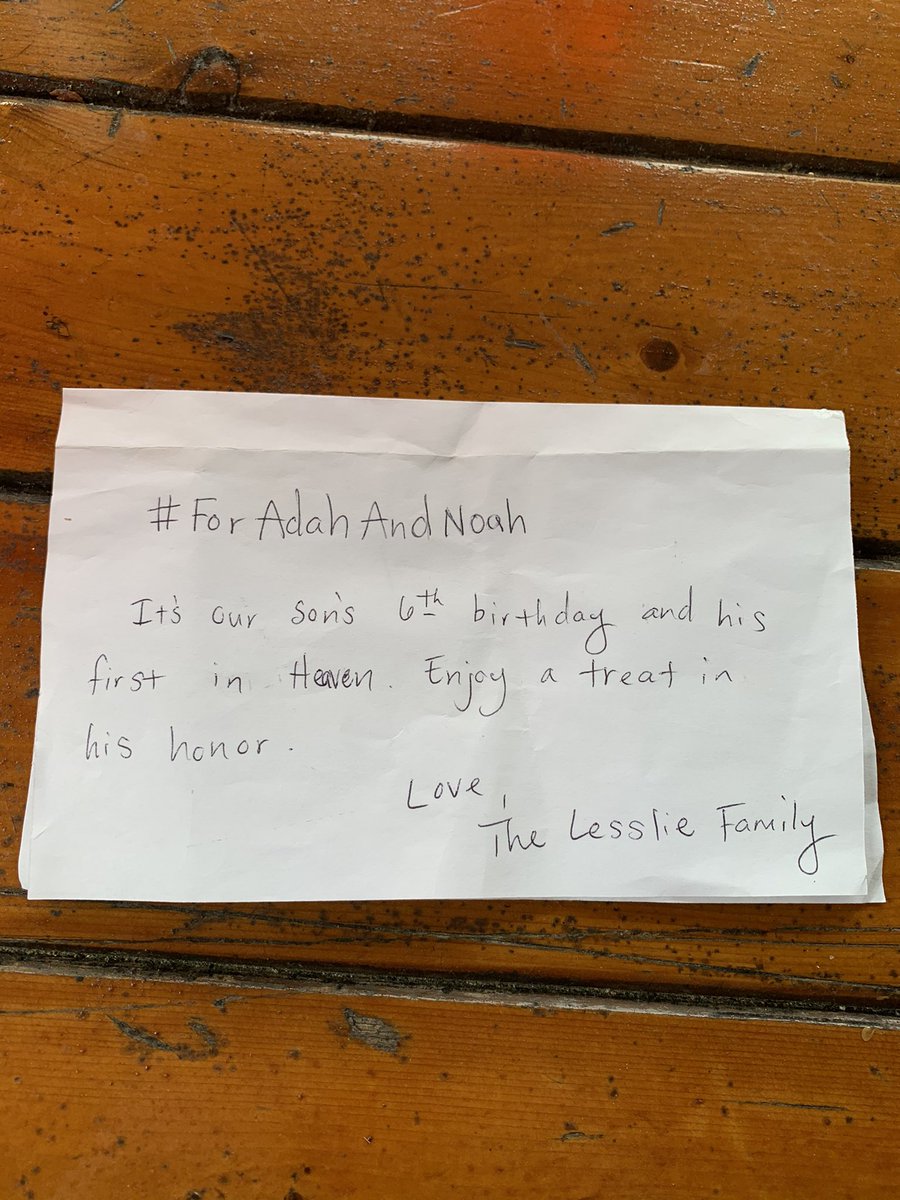 #ForAdahAndNoah
It's our son's 6th birthday and his
first in Heaven. Enjoy a treat in
his honor.
Love,
The Lesslie Family